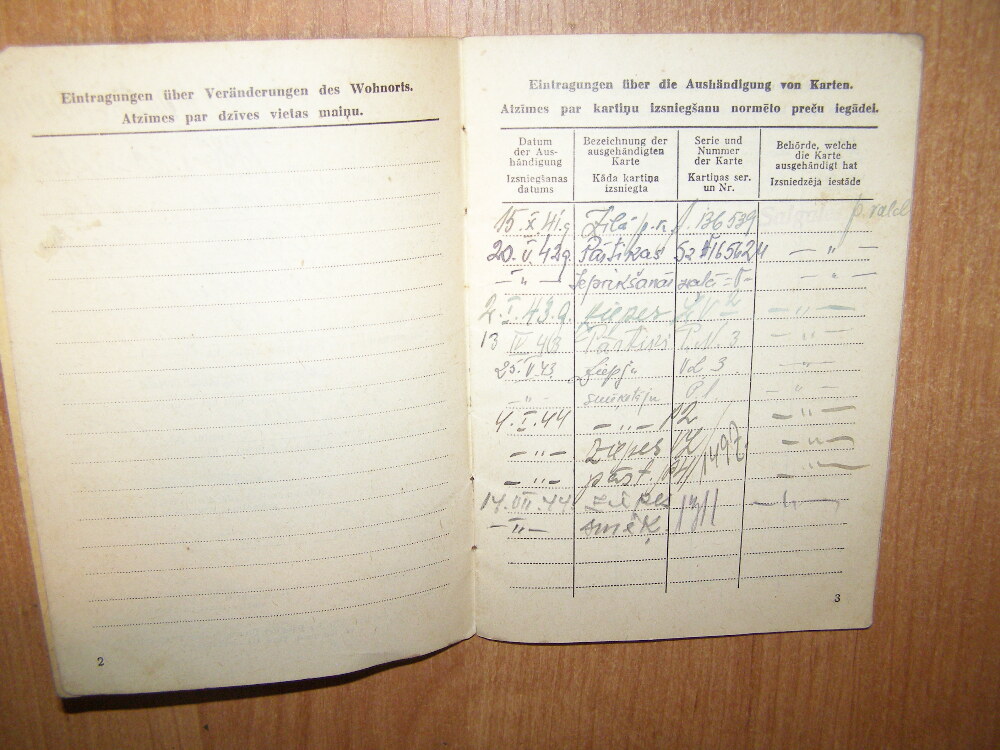 Eintragungen über Veränderungen des Wohnorts.
Atzīmes par dzīves vietas maiņu.
2
Eintragungen über die Aushändigung von Karten.
Atzīmes par kartiņu izsniegšanu normēto preču iegādei.
Datum der Aus-händigung Izsniegšanas datums
Bezeichnung der ausgehändigten Karte Kāda kartiņa izsniegta
Serie und Nummer der Karte Kartiņas ser. un Nr.
Behörde, welche die Karte ausgehändigt hat Izsniedzēja iestāde
15. X. 41.g Zilā p.k. 136539
20. V. 42g. Pārtikas 165624 — " —
— " — — " —
2. I. 43.g. ziepes — " —
13 IV 43 Pārtikas P.N. 3 — " —
25. V. 43. Ziepju VL 3. — " —
— " — smēķētāju P1 — " —
4. I. 44 — " — P2 — " —
— " — ziepes — " —
— " — pārt. — " —
14. VII. 44. ziepes
— " — smēķ.
3